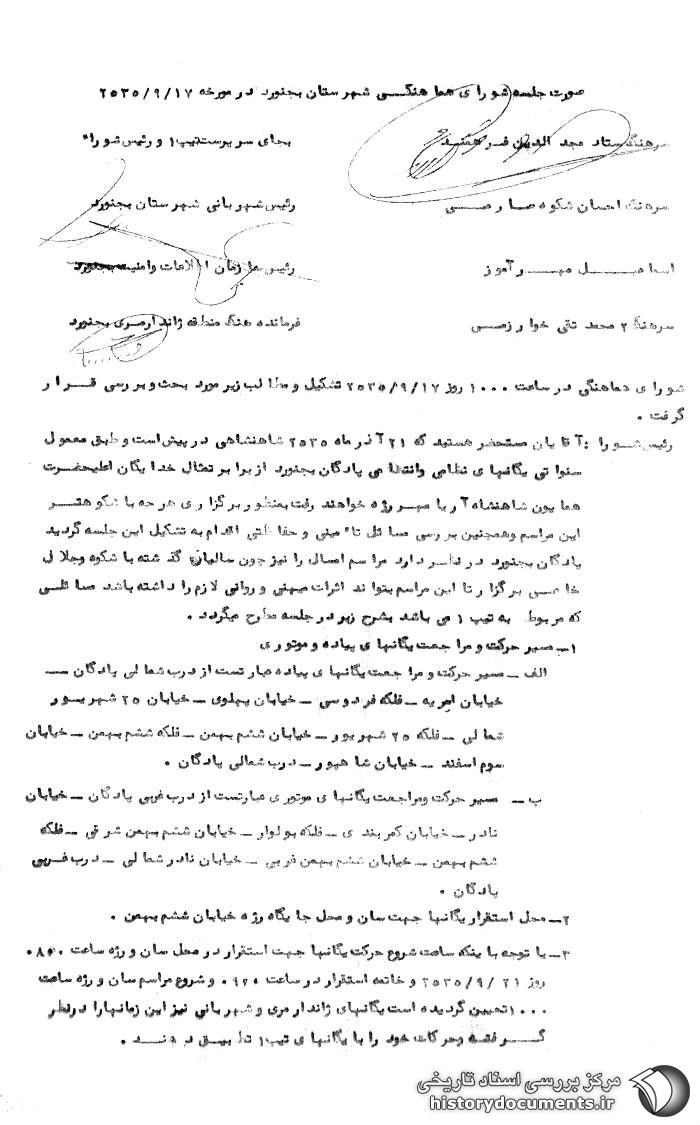 صورت جلسه شورای هماهنگی شهرستان بجنورد در مورخه ۲۵۳۵/۹/۱۷
سرهنگ ستاد مجد الدین فرهمند بجای سرپرست تیپ ۱ و رئیس شورا
سرهنگ احسان شکوه صارمی رئیس شهربانی شهرستان بجنورد
اسماعیل مهرآموز رئیس سازمان اطلاعات وامنیت بجنورد
سرهنگ ۲ محمد تقی خوارزمی فرمانده هنگ منطقه ژاندارمری بجنورد
شورای هماهنگی در ساعت ۱۰۰۰ روز ۲۵۳۵/۹/۱۷ تشکیل و مطالب زیر مورد بحث و بررسی قرار
گرفت .
رئیس شورا : آقایان مستحضر هستید که ۲۱ آذر ماه ۲۵۳۵ شاهنشاهی در پیش است و طبق معمول
سنواتی یگانهای نظامی وانتظامی پادگان بجنورد از برابر تمثال خدایگان اعلیحضرت
همایون شاهنشاه آریا مهر رژه خواهند رفت بمنظور برگزاری هر چه با شکوهتر
این مراسم وهمچنین بررسی مسائل تامینی و حفاظتی اقدام به تشکیل این جلسه گردید
پادگان بجنورد در نظر دارد مراسم امسال را نیز چون سالهای گذشته با شکوه وجلال
خاصی برگزار تا این مراسم بتواند اثرات میهنی و روانی لازم را داشته باشد مسائلی
که مربوط به تیپ ۱ می باشد بشرح زیر در جلسه مطرح میگردد .
۱ـ مسیر حرکت و مراجعت یگانهای پیاده و موتوری
الف ـ مسیر حرکت و مراجعت یگانهای پیاده عبارتست از درب شمالی پادگان ـ
خیابان امیریه ـ فلکه فردوسی ـ خیابان پهلوی ـ خیابان ۲۵ شهریور
شمالی ـ فلکه ۲۵ شهریور ـ خیابان ششم بهمن ـ فلکه ششم بهمن ـ خیابان
سوم اسفند ـ خیابان شاهپور ـ درب شمالی پادگان .
ب ـ مسیر حرکت ومراجعت یگانهای موتوری عبارتست از درب غربی پادگان ـ خیابان
نادر ـ خیابان کمربندی ـ فلکه بولوار ـ خیابان ششم بهمن شرقی ـ فلکه
ششم بهمن ـ خیابان ششم بهمن غربی ـ خیابان نادر شمالی ـ درب غربی
پادگان .
۲ـ محل استقرار یگانها جهت سان و محل جایگاه رژه خیابان ششم بهمن .
۳ـ با توجه باینکه ساعت شروع حرکت یگانها جهت استقرار در محل سان و رژه ساعت
روز ۲۵۳۵/۹/۲۱ و خاتمه استقرار در ساعت ۰۹۲۰ و شروع مراسم سان و رژه ساعت
۱۰۰۰ تعیین گردیده است یگانهای ژاندارمری و شهربانی نیز این زمانهارا درنظر
گرفته وحرکات خود را با یگانهای تیپ ۱ تطبیق دهند .
مرکز بررسی اسناد تاریخی
historydocuments.ir